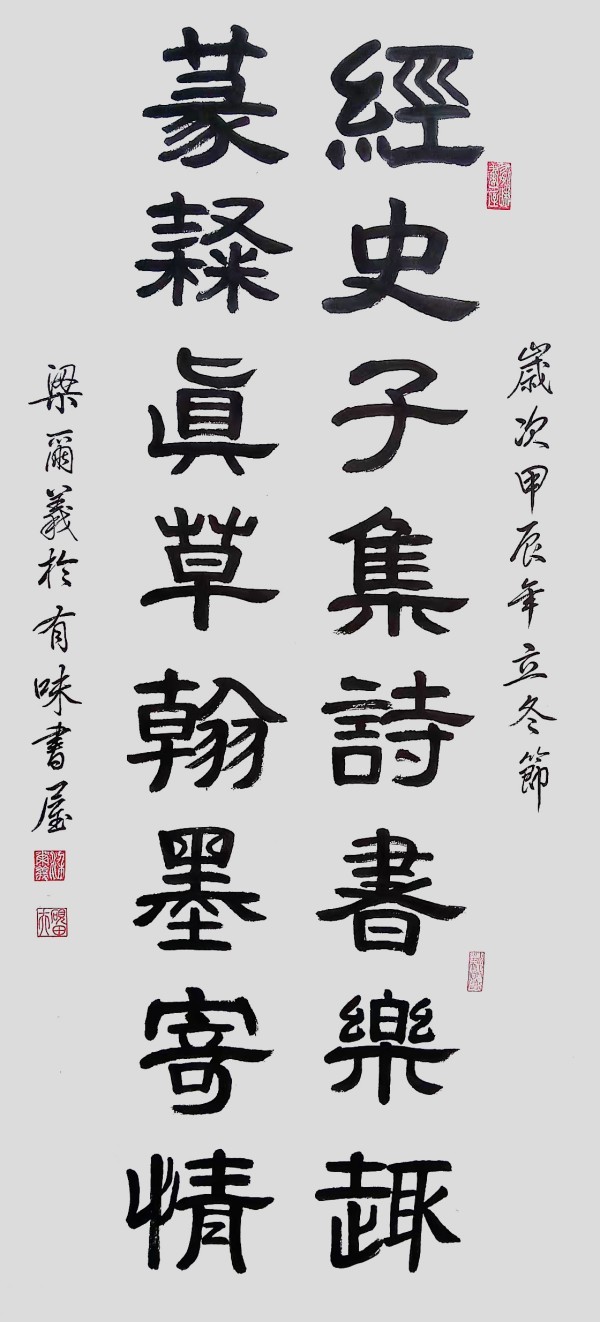 嵗次甲辰年立冬節
經史子集詩書樂趣
篆隸眞草翰墨寄情
梁爾義於有味書屋